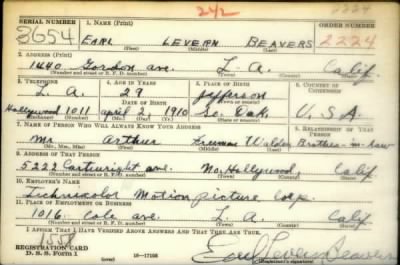 242
2224
SERIAL NUMBER 1. NAME (Print) ORDER NUMBER
3654 EARL LEVERN BEAVERS 2224
(First) (Middle) (Last)
2. ADDRESS (Print)
1440 Gordon ave. L. A. Calif.
(Number and street or R. F. D. number) (Town) (County) (State)
3. TELEPHONE 4. AGE IN YEARS 5. PLACE OF BIRTH 6. COUNTRY OF CITIZENSHIP
L. A. 29 Jefferson
DATE OF BIRTH
Hollywood 1011 april 2, 1910 So. Dak. U. S. A.
(Exchange) (Number) (Mo.) (Day) (Yr.) (State or country)
7. NAME OF PERSON WHO WILL ALWAYS KNOW YOUR ADDRESS 8. RELATIONSHIP OF THAT PERSON
Mr arthur Freeman Walden Brother-in-law
(Mr., Mrs., Miss) (First) (Middle) (Last)
9. ADDRESS OF THAT PERSON
5222 Cartwright ave. No. Hollywood Calif
(Number and street or R. F. D. number) (Town) (County) (State)
10. EMPLOYER'S NAME
Technicolor Motion picture Corp.
11. PLACE OF EMPLOYMENT OR BUSINESS
1016 Cole ave. L. A. Calif
(Number and street or R. F. D. number) (Town) (County) (State)
I AFFIRM THAT I HAVE VERIFIED ABOVE ANSWERS AND THAT THEY ARE TRUE.
REGISTRATION CARD
D. S. S. Form 1 (over) 16—17105 Earl Levern Beavers
(Registrant's signature)